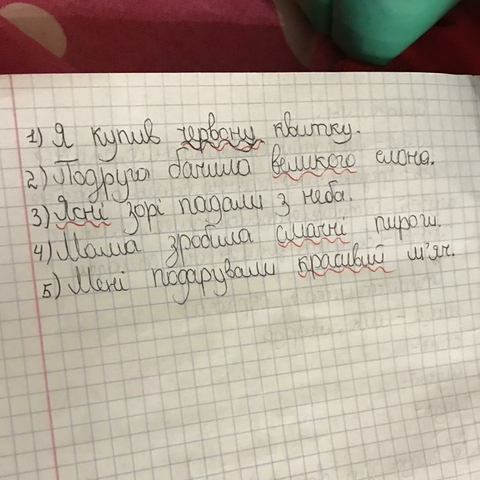 1) Я купив червону квитку.
2) Подруга бачила великого слона.
3) Ясні зорі падали з неба.
4) Мама зробила смачні пироги.
5) Мені подарували красивий м'яч.